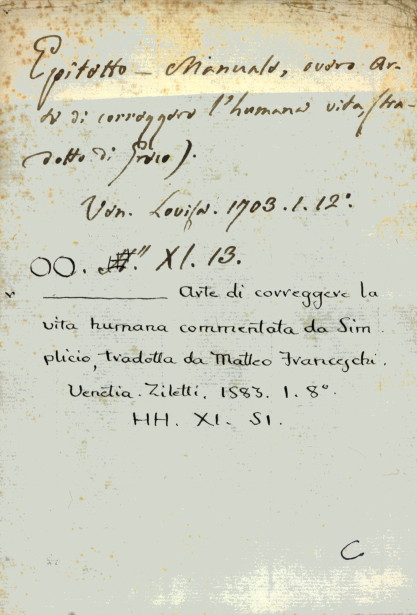 Epitetto – Manuale, overo Ar-
te di correggere l'humana vita, (tra-
dotto di Greco).
Ven. Lovisa. 1703. 1. 12°.
OO. XI. 13.
Arte di correggere la
vita humana commentata da Sim
plicio, tradotta da Matteo Franceschi.
Venetia. Ziletti. 1583. 1. 8°.
HH. XI. 51.
C